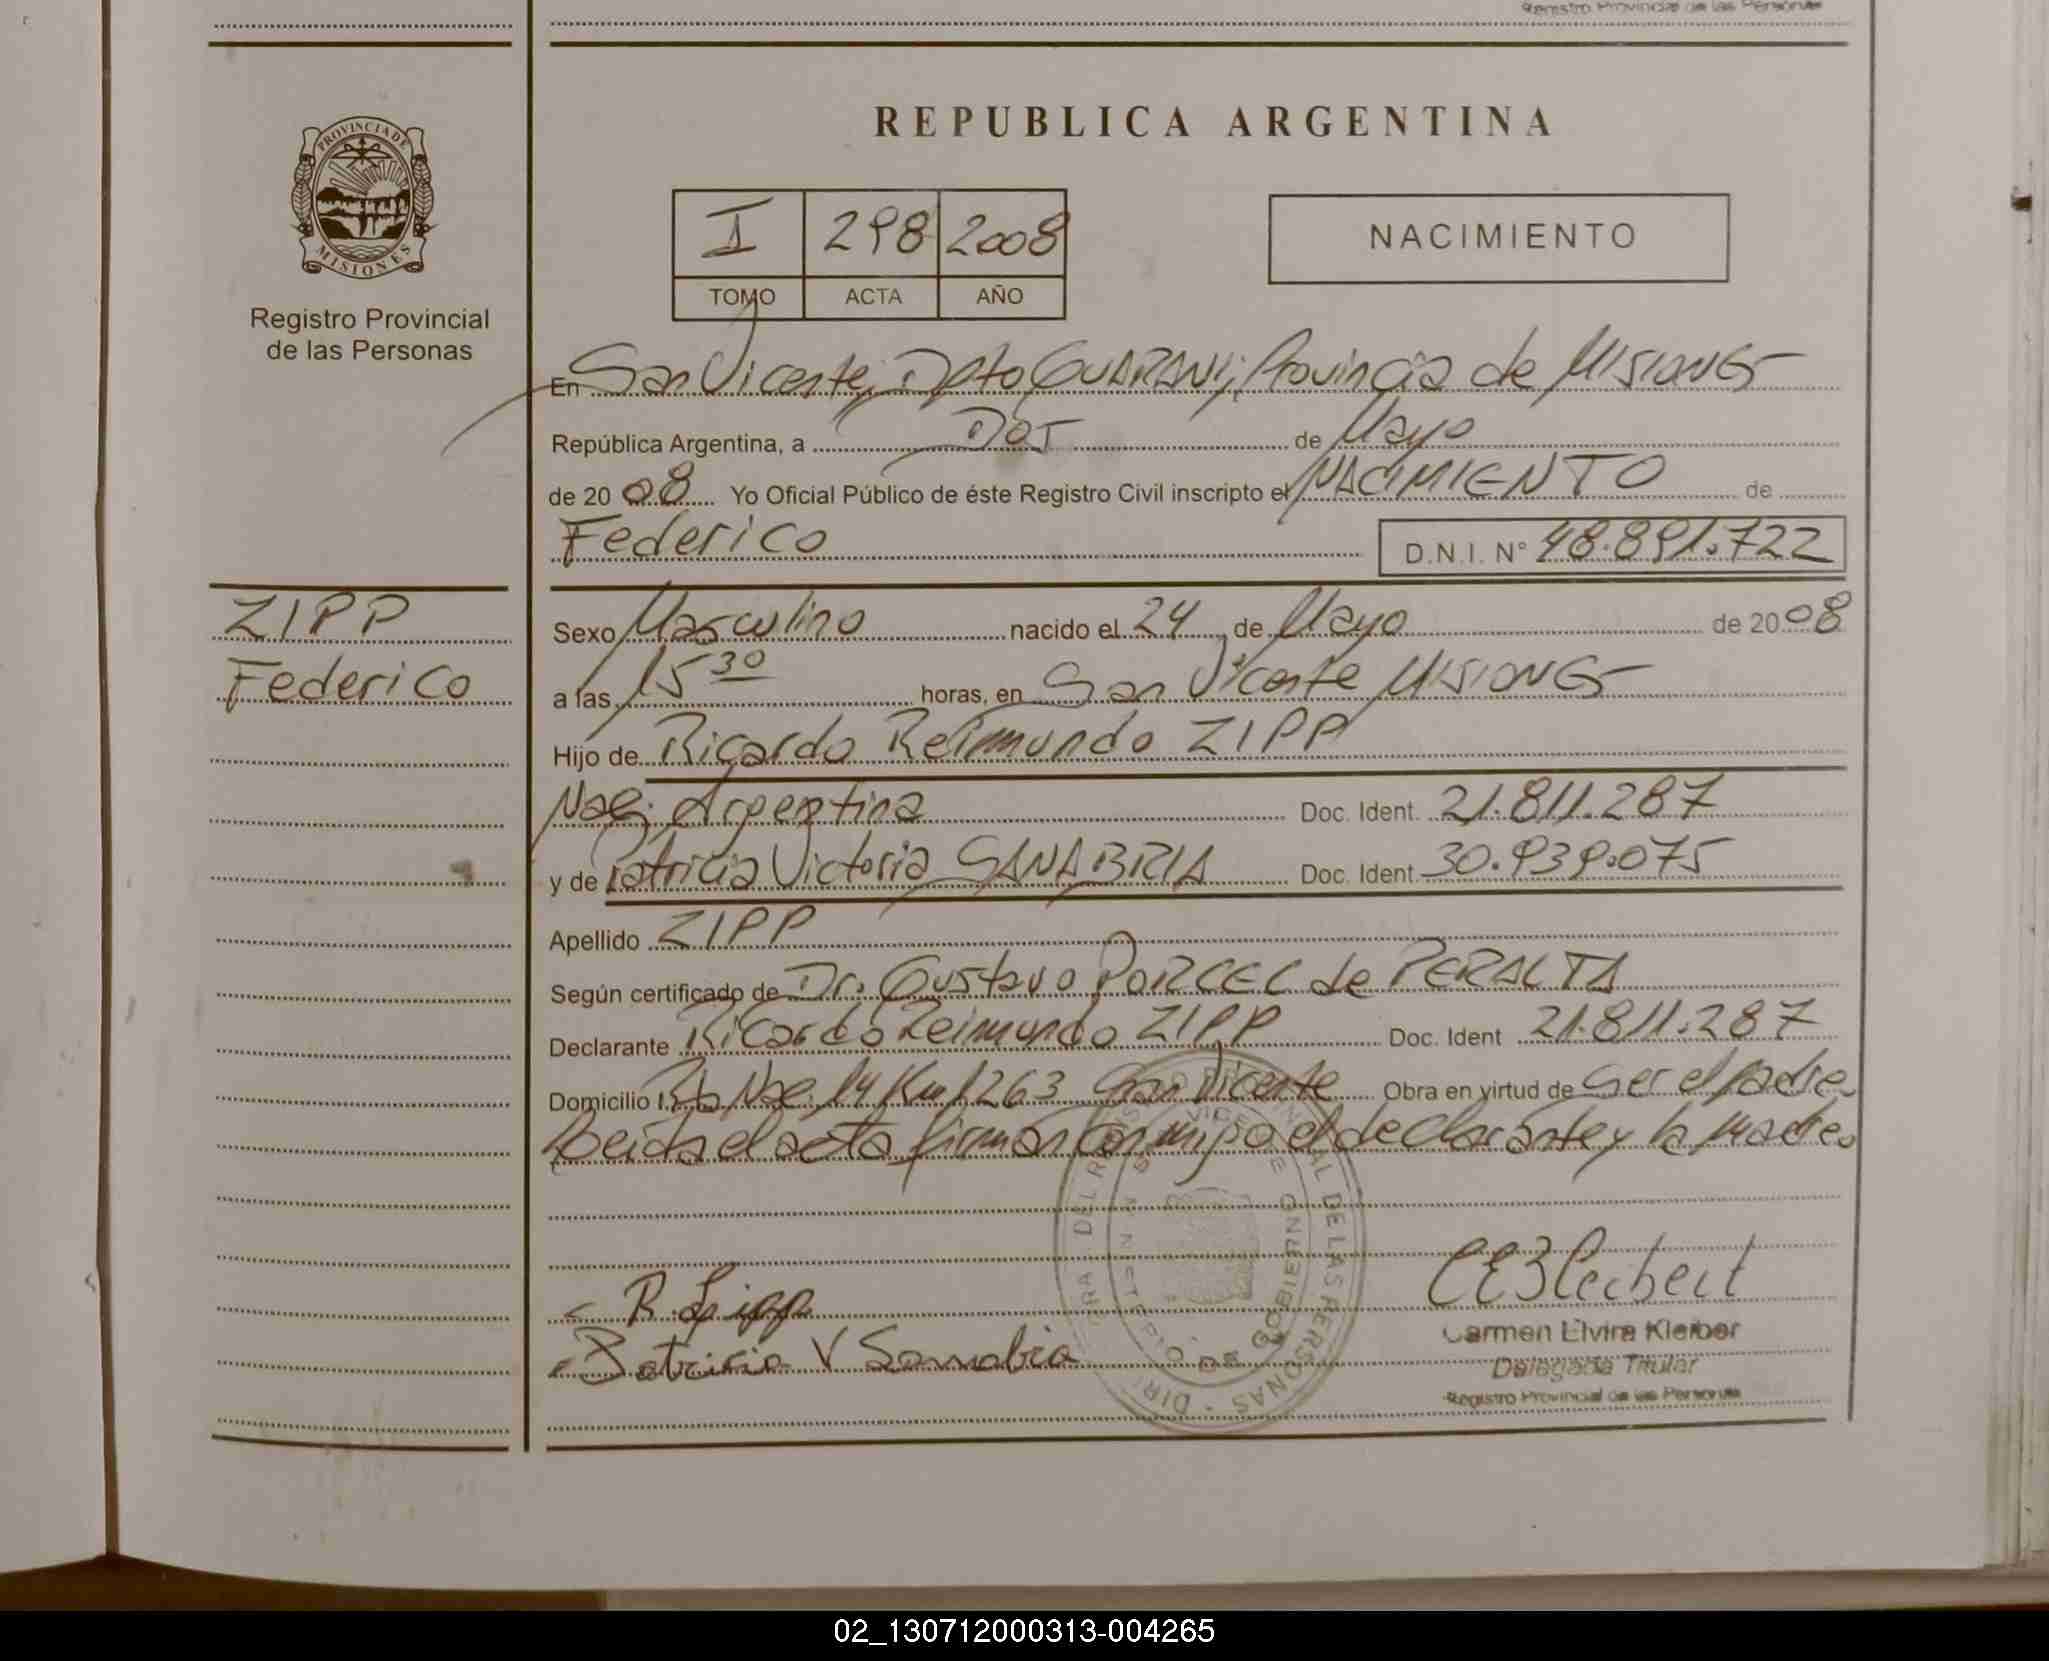 Registro Provincial de las Personas
PROVINCIA DE
MISIONES
Registro Provincial
de las Personas
REPUBLICA ARGENTINA
I 298 2008
TOMO ACTA AÑO
NACIMIENTO
En San Vicente, Dpto GUARANI, Provincia de MISIONES
República Argentina, a DOS de Mayo
de 2008 Yo Oficial Público de éste Registro Civil inscripto el NACIMIENTO de
Federico D.N.I. Nº 48.891.722
ZIPP
Federico
Sexo Masculino nacido el 24 de Mayo de 2008
a las 15 30 horas, en San Vicente MISIONES
Hijo de Ricardo Reimundo ZIPP
Nac. Argentina Doc. Ident. 21.811.287
y de Patricia Victoria SANABRIA Doc. Ident. 30.939.075
Apellido ZIPP
Según certificado de Dr. Gustavo PORCEL de PERALTA
Declarante Ricardo Reimundo ZIPP Doc. Ident 21.811.287
Domicilio Rta Nac. 14 Km 1263 San Vicente Obra en virtud de Ser el Padre
Leida el acta firman conmigo el declarante y la Madre.
R. Zipp
Patricia V Sanabria
Carmen Elvira Kleiber
Delegada Titular
Registro Provincial de las Personas
02_130712000313-004265